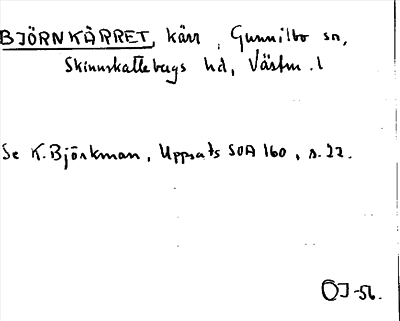 BJÖRNKÄRRET, kärr, Gunnilbo sn,
Skinnskattebergs hd, Västm. l
Se K. Björkman, Uppsats SOA 160, s. 22.
ÖJ-56.